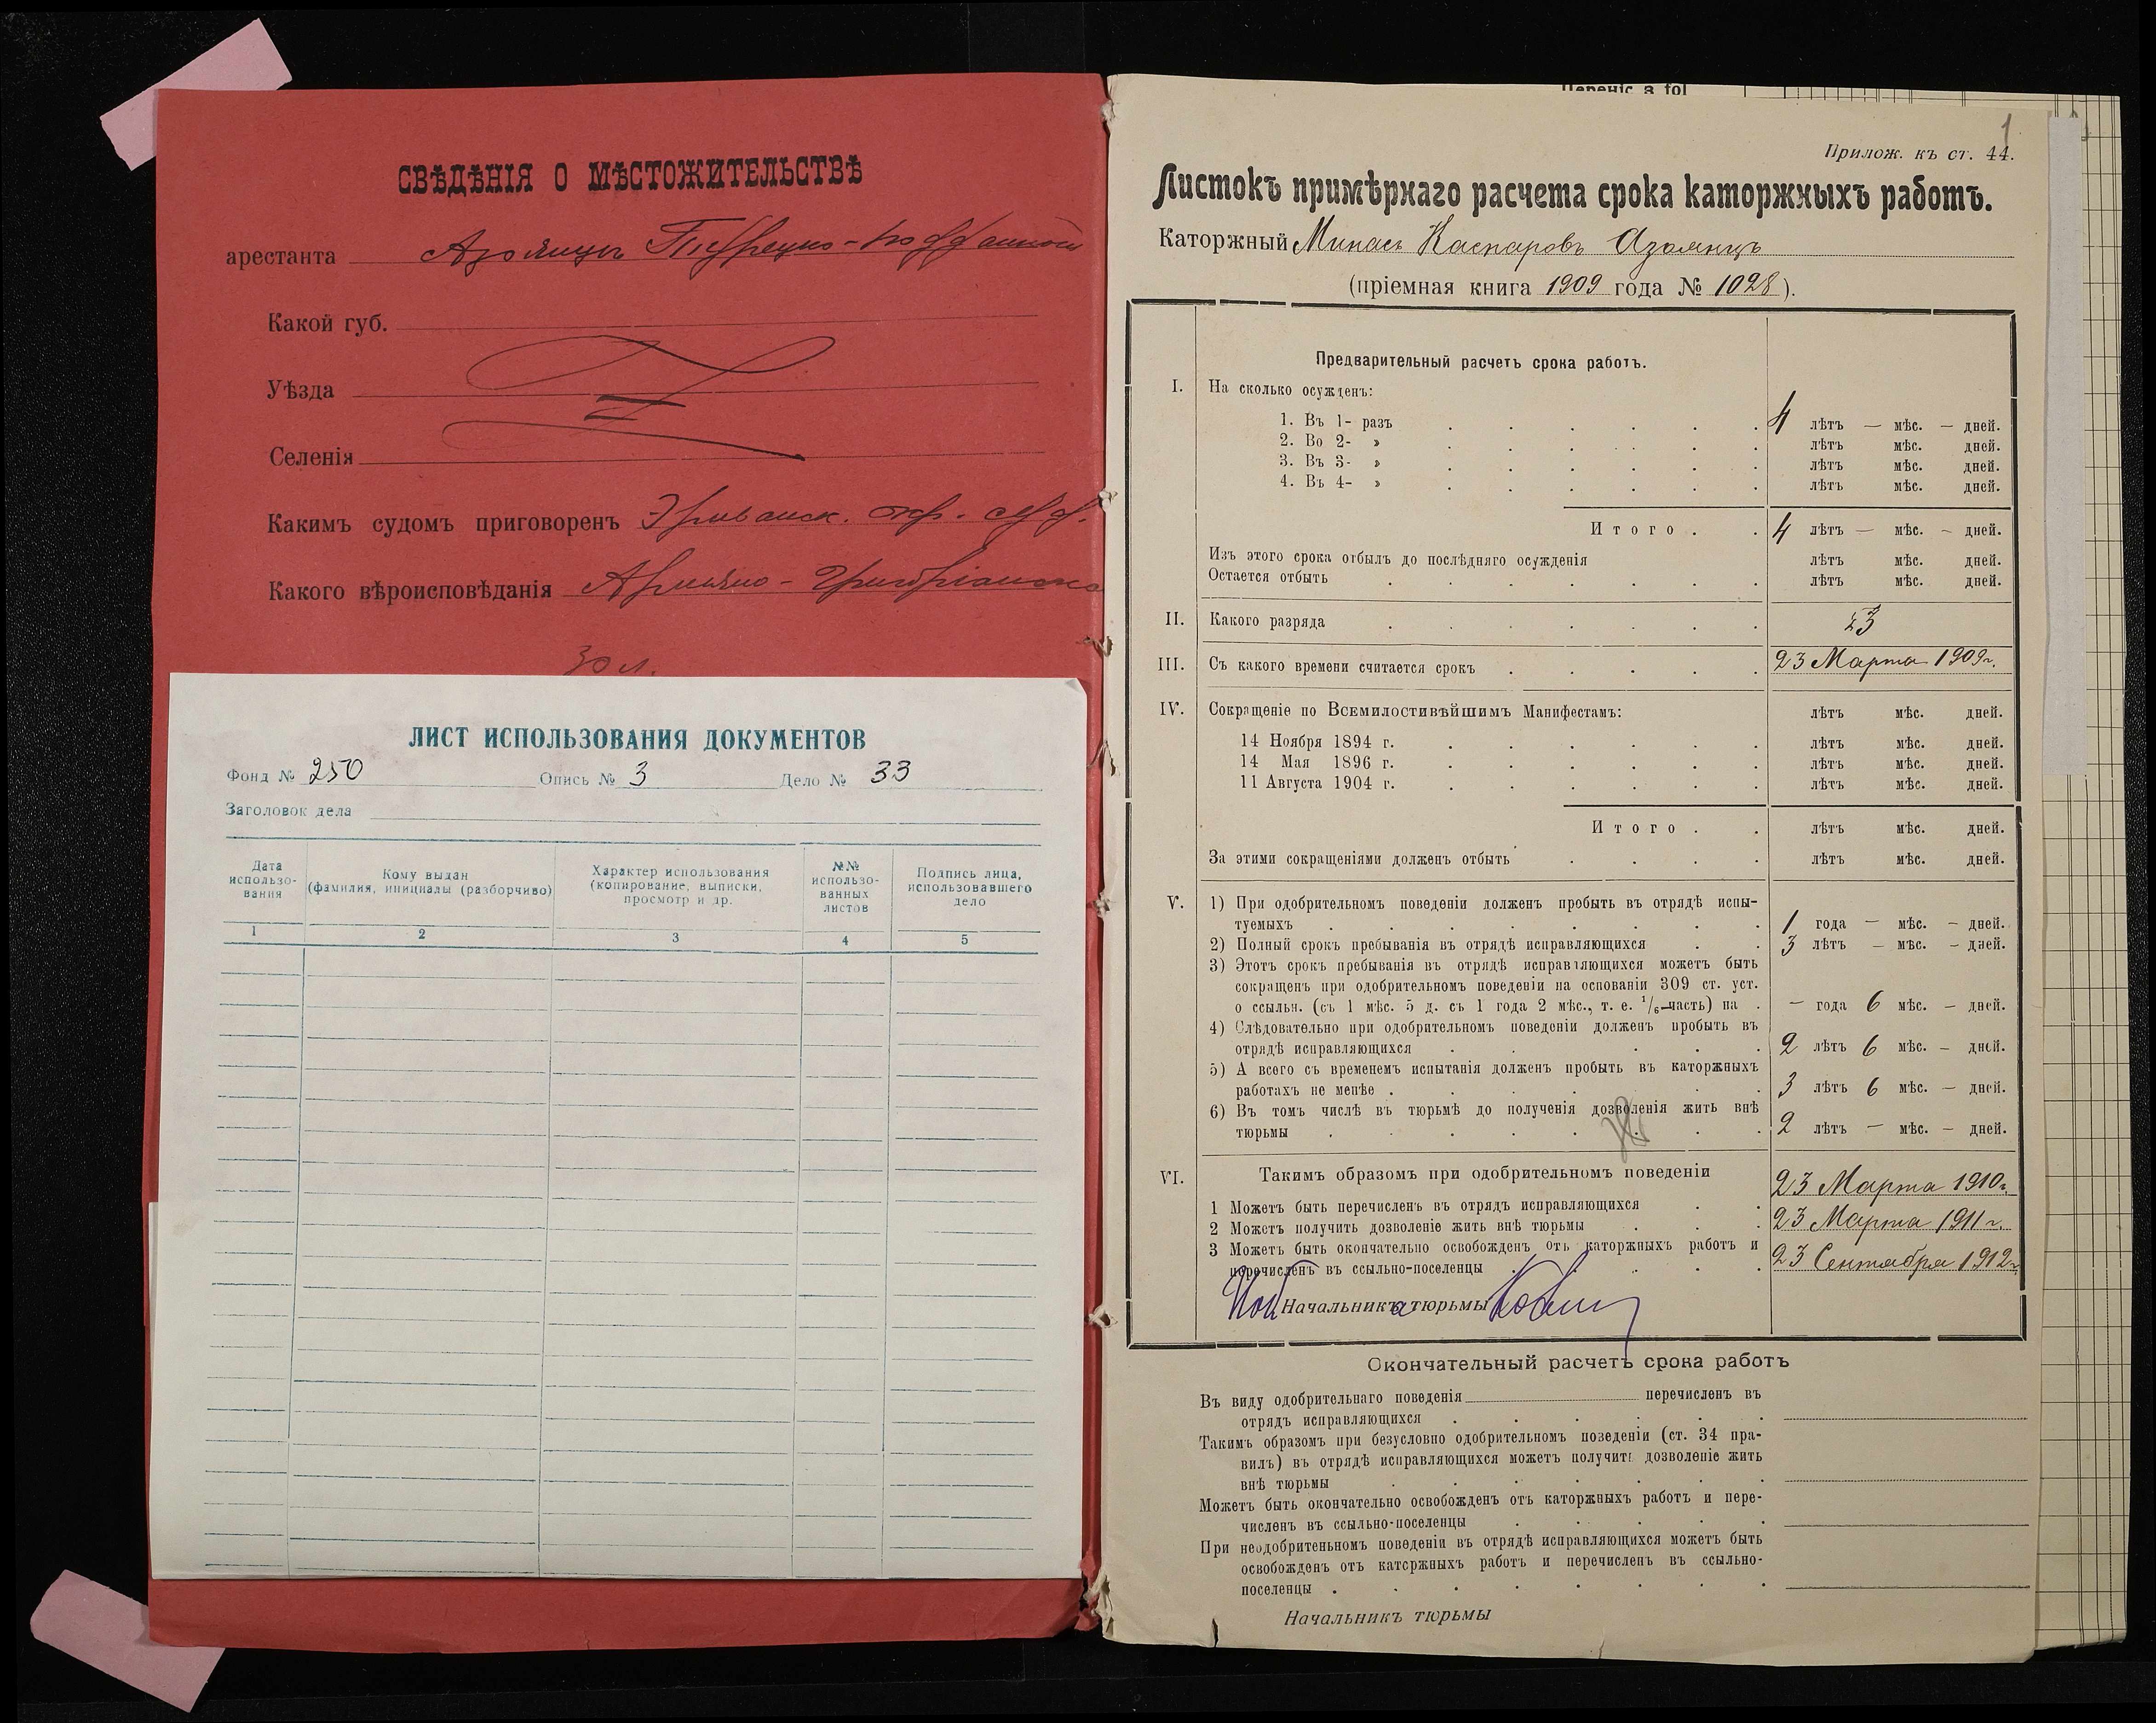 СВѢДѢНІЯ О МѢСТОЖИТЕЛЬСТВѢ
арестанта Азоянцъ Турецко-подданной
Какой губ.
Уѣзда
Селенія
Какимъ судомъ приговоренъ Эриванск. окр. суд.
Какого вѣроисповѣданія Армяно-Григоріанска
30 л.
ЛИСТ ИСПОЛЬЗОВАНИЯ ДОКУМЕНТОВ
Фонд № 250 Опись № 3 Дело № 33
Заголовок дела
Дата использо-вания
Кому выдан (фамилия, инициалы (разборчиво)
Характер использования (копирование, выписки, просмотр и др.
№№ использо-ванных листов
Подпись лица, использовавшего дело
1 2 3 4 5
Переніс а fol
1
Прилож. къ ст. 44.
Листокъ примѣрнаго расчета срока каторжныхъ работъ.
Каторжный Минасъ Каспаровъ Азоянцъ
(пріемная книга 1909 года № 1028).
Предварительный расчетъ срока работъ.
I. На сколько осужденъ:
1. Въ 1- разъ . . . . . . 4 лѣтъ — мѣс. — дней.
2. Во 2- » . . . . . . лѣтъ мѣс. дней.
3. Въ 3- » . . . . . . лѣтъ мѣс. дней.
4. Въ 4- » . . . . . . лѣтъ мѣс. дней.
Итого . . 4 лѣтъ — мѣс. — дней.
Изъ этого срока отбылъ до послѣдняго осужденія лѣтъ мѣс. дней.
Остается отбыть . . . . . . . лѣтъ мѣс. дней.
II. Какого разряда . . . . . . . 3
III. Съ какого времени считается срокъ . . . . . 23 Марта 1909 г.
IV. Сокращеніе по Всемилостивѣйшимъ Манифестамъ: лѣтъ мѣс. дней.
14 Ноября 1894 г. . . . . . . лѣтъ мѣс. дней.
14 Мая 1896 г. . . . . . . лѣтъ мѣс. дней.
11 Августа 1904 г. . . . . . . лѣтъ мѣс. дней.
Итого . . лѣтъ мѣс. дней.
За этими сокращеніями долженъ отбыть . . . . лѣтъ мѣс. дней.
V. 1) При одобрительномъ поведеніи долженъ пробыть въ отрядѣ испы-
туемыхъ . . . . . . . . 1 года — мѣс. — дней.
2) Полный срокъ пребыванія въ отрядѣ исправляющихся . . 3 лѣтъ — мѣс. — дней.
3) Этотъ срокъ пребыванія въ отрядѣ исправляющихся можетъ быть
сокращенъ при одобрительномъ поведеніи на основаніи 309 ст. уст.
о ссыльн. (съ 1 мѣс. 5 д. съ 1 года 2 мѣс., т. е. 1/6—часть) на . — года 6 мѣс. — дней.
4) Слѣдовательно при одобрительномъ поведеніи долженъ пробыть въ
отрядѣ исправляющихся . . . . . 2 лѣтъ 6 мѣс. — дней.
5) А всего съ временемъ испытанія долженъ пробыть въ каторжныхъ
работахъ не менѣе . . . . . . 3 лѣтъ 6 мѣс. — дней.
6) Въ томъ числѣ въ тюрьмѣ до полученія дозволенія жить внѣ
тюрьмы . . . . . . . . 2 лѣтъ — мѣс. — дней.
VI. Такимъ образомъ при одобрительномъ поведеніи
1 Можетъ быть перечисленъ въ отрядъ исправляющихся . . 23 Марта 1910 г.
2 Можетъ получить дозволеніе жить внѣ тюрьмы . . . 23 Марта 1911 г.
3 Можетъ быть окончательно освобожденъ отъ каторжныхъ работъ и
перечисленъ въ ссыльно-поселенцы . . . . 23 Сентября 1912 г.
Начальника тюрьмы
Окончательный расчетъ срока работъ
Въ виду одобрительнаго поведенія перечисленъ въ
отрядъ исправляющихся . . . . . .
Такимъ образомъ при безусловно одобрительномъ поведеніи (ст. 34 пра-
вилъ) въ отрядѣ исправляющихся можетъ получить дозволеніе жить
внѣ тюрьмы . . . . . . .
Можетъ быть окончательно освобожденъ отъ каторжныхъ работъ и пере-
численъ въ ссыльно-поселенцы . . . . .
При неодобрительномъ поведеніи въ отрядѣ исправляющихся можетъ быть
освобожденъ отъ каторжныхъ работъ и перечисленъ въ ссыльно-
поселенцы . . . . . . . .
Начальникъ тюрьмы